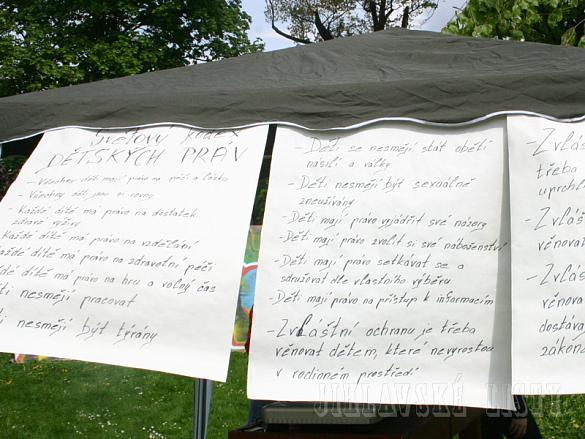 Světový kodex
DĚTSKÝCH PRÁV
- Všechny děti mají právo na péči a lásku
- Všechny děti jsou si rovny
- Každé dítě má právo na dostatek
zdravé výživy
Každé dítě má právo na vzdělání
Každé dítě má právo na zdravotní péči
Každé dítě má právo na hru a volný čas
nesmějí pracovat
nesmějí být týrány
- Děti se nesmějí stát obětí
násilí a války
- Děti nesmějí být sexuálně
zneužívány
- Děti mají právo vyjádřit své názory
- Děti mají právo zvolit si své náboženství
- Děti mají právo setkávat se a
sdružovat dle vlastního výběru
- Děti mají právo na přístup k informacím
- Zvláštní ochranu je třeba
věnovat dětem, které nevyrostou
v rodinném prostředí
- Zvl
třeba
uprchl
- Zvlá
věnovat
- Zvlá
věnova
dostáva
zákon
JIHLAVSKÉ LISTY